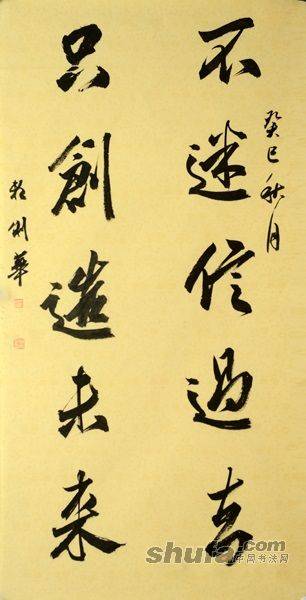 癸巳秋月
不迷信過去
只創造未来
華
shufa.com
中国书法网